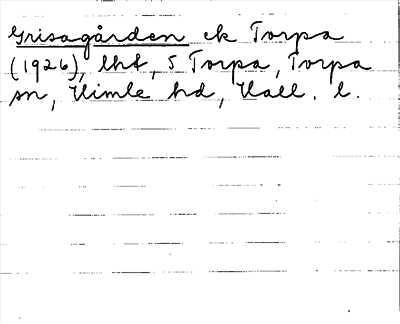 Grisagården ek Torpa
(1926), lht, S Torpa, Torpa
sn, Himle hd, Hall. l.